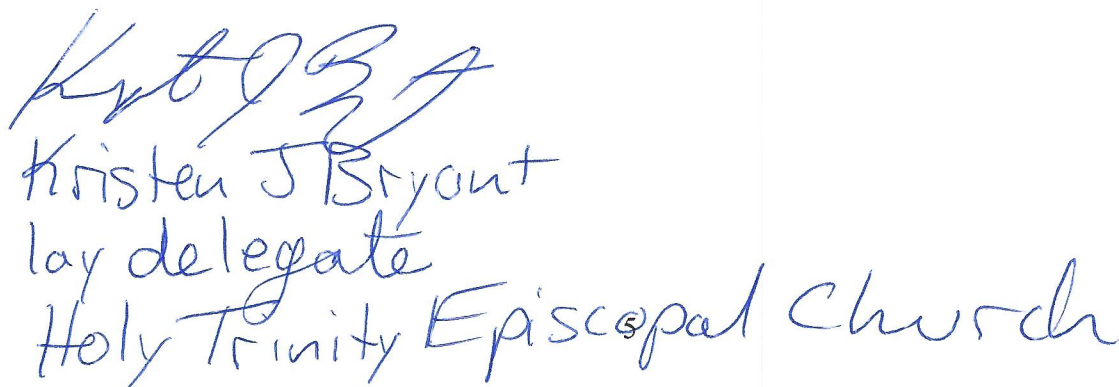 Kristen J Bryant
lay delegate
Holy Trinity Episcopal Church
5